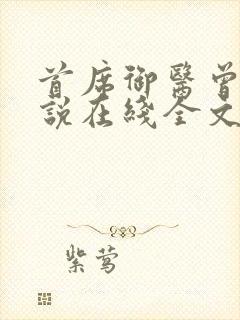 首席御醫曾
說在綫全文
紫莺